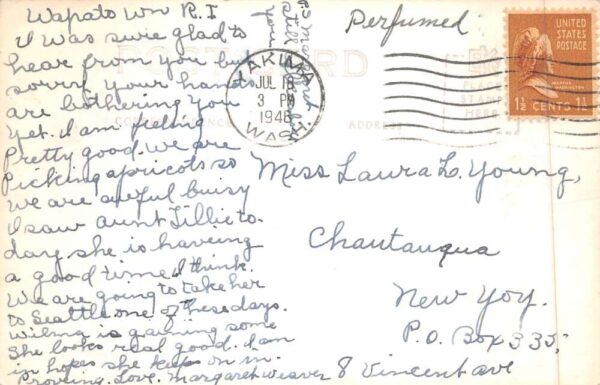 Wapato Wn R.I
I was sure glad to
hear from you but
sorry your hands
are bothering you
yet. I am feeling
Pretty good. we are
Picking apricots so
we are awful buisy
I saw aunt Tillie to-
day. she is haveing
a good time I think.
We are going to take her
to Seattle one of these days.
Wilma is gaining some
She looks real good. I am
in hopes she keeps on im-
proveing. Love. Margaret Weaver
Still
your
Perfumed
POST CARD
YAKIMA
JUL 18
3 PM
1946
WASH
CORRESPONDENCE
ADDRESS
PLACE
STAMP
HERE
UNITED
STATES
POSTAGE
MARTHA
WASHINGTON
1½ CENTS 1½
Miss Laura L. Young,
Chautauqua
New Yoy.
P.O. Box 335,
8 Vincent ave